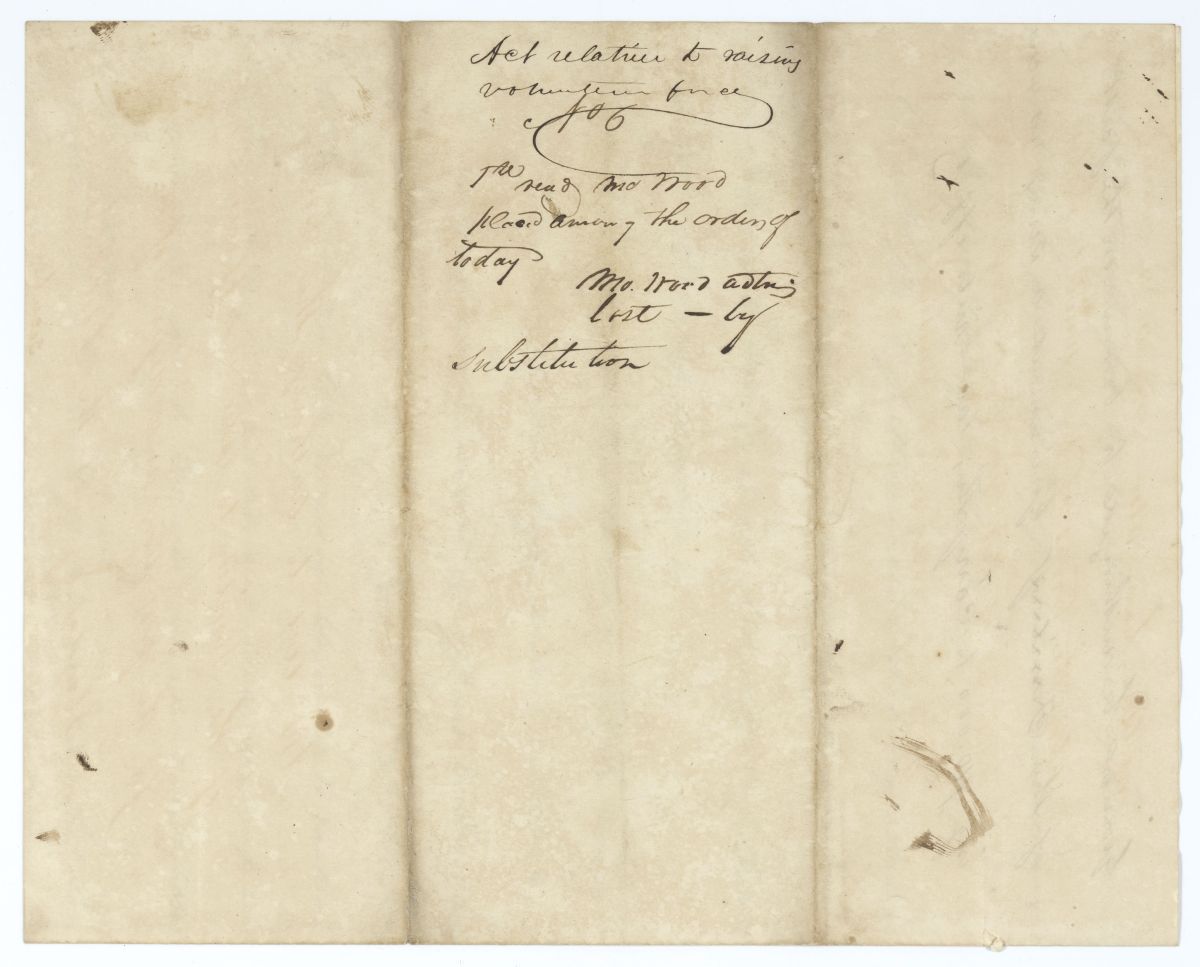 Act relative to raising
volunteer force
No 6
read Mo Wood
placed among the orders of
today
Mo. Wood
lost — by
substitution